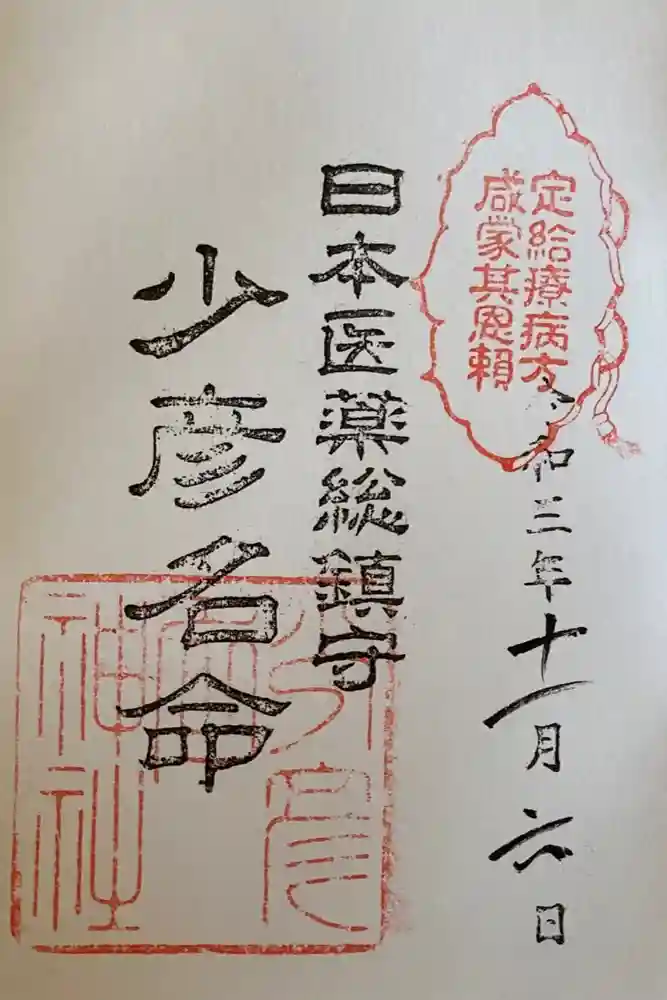 定給療病方
咸蒙其恩頼
令和三年十一月六日
日本医薬総鎮守
少彦名命
少彦名神社